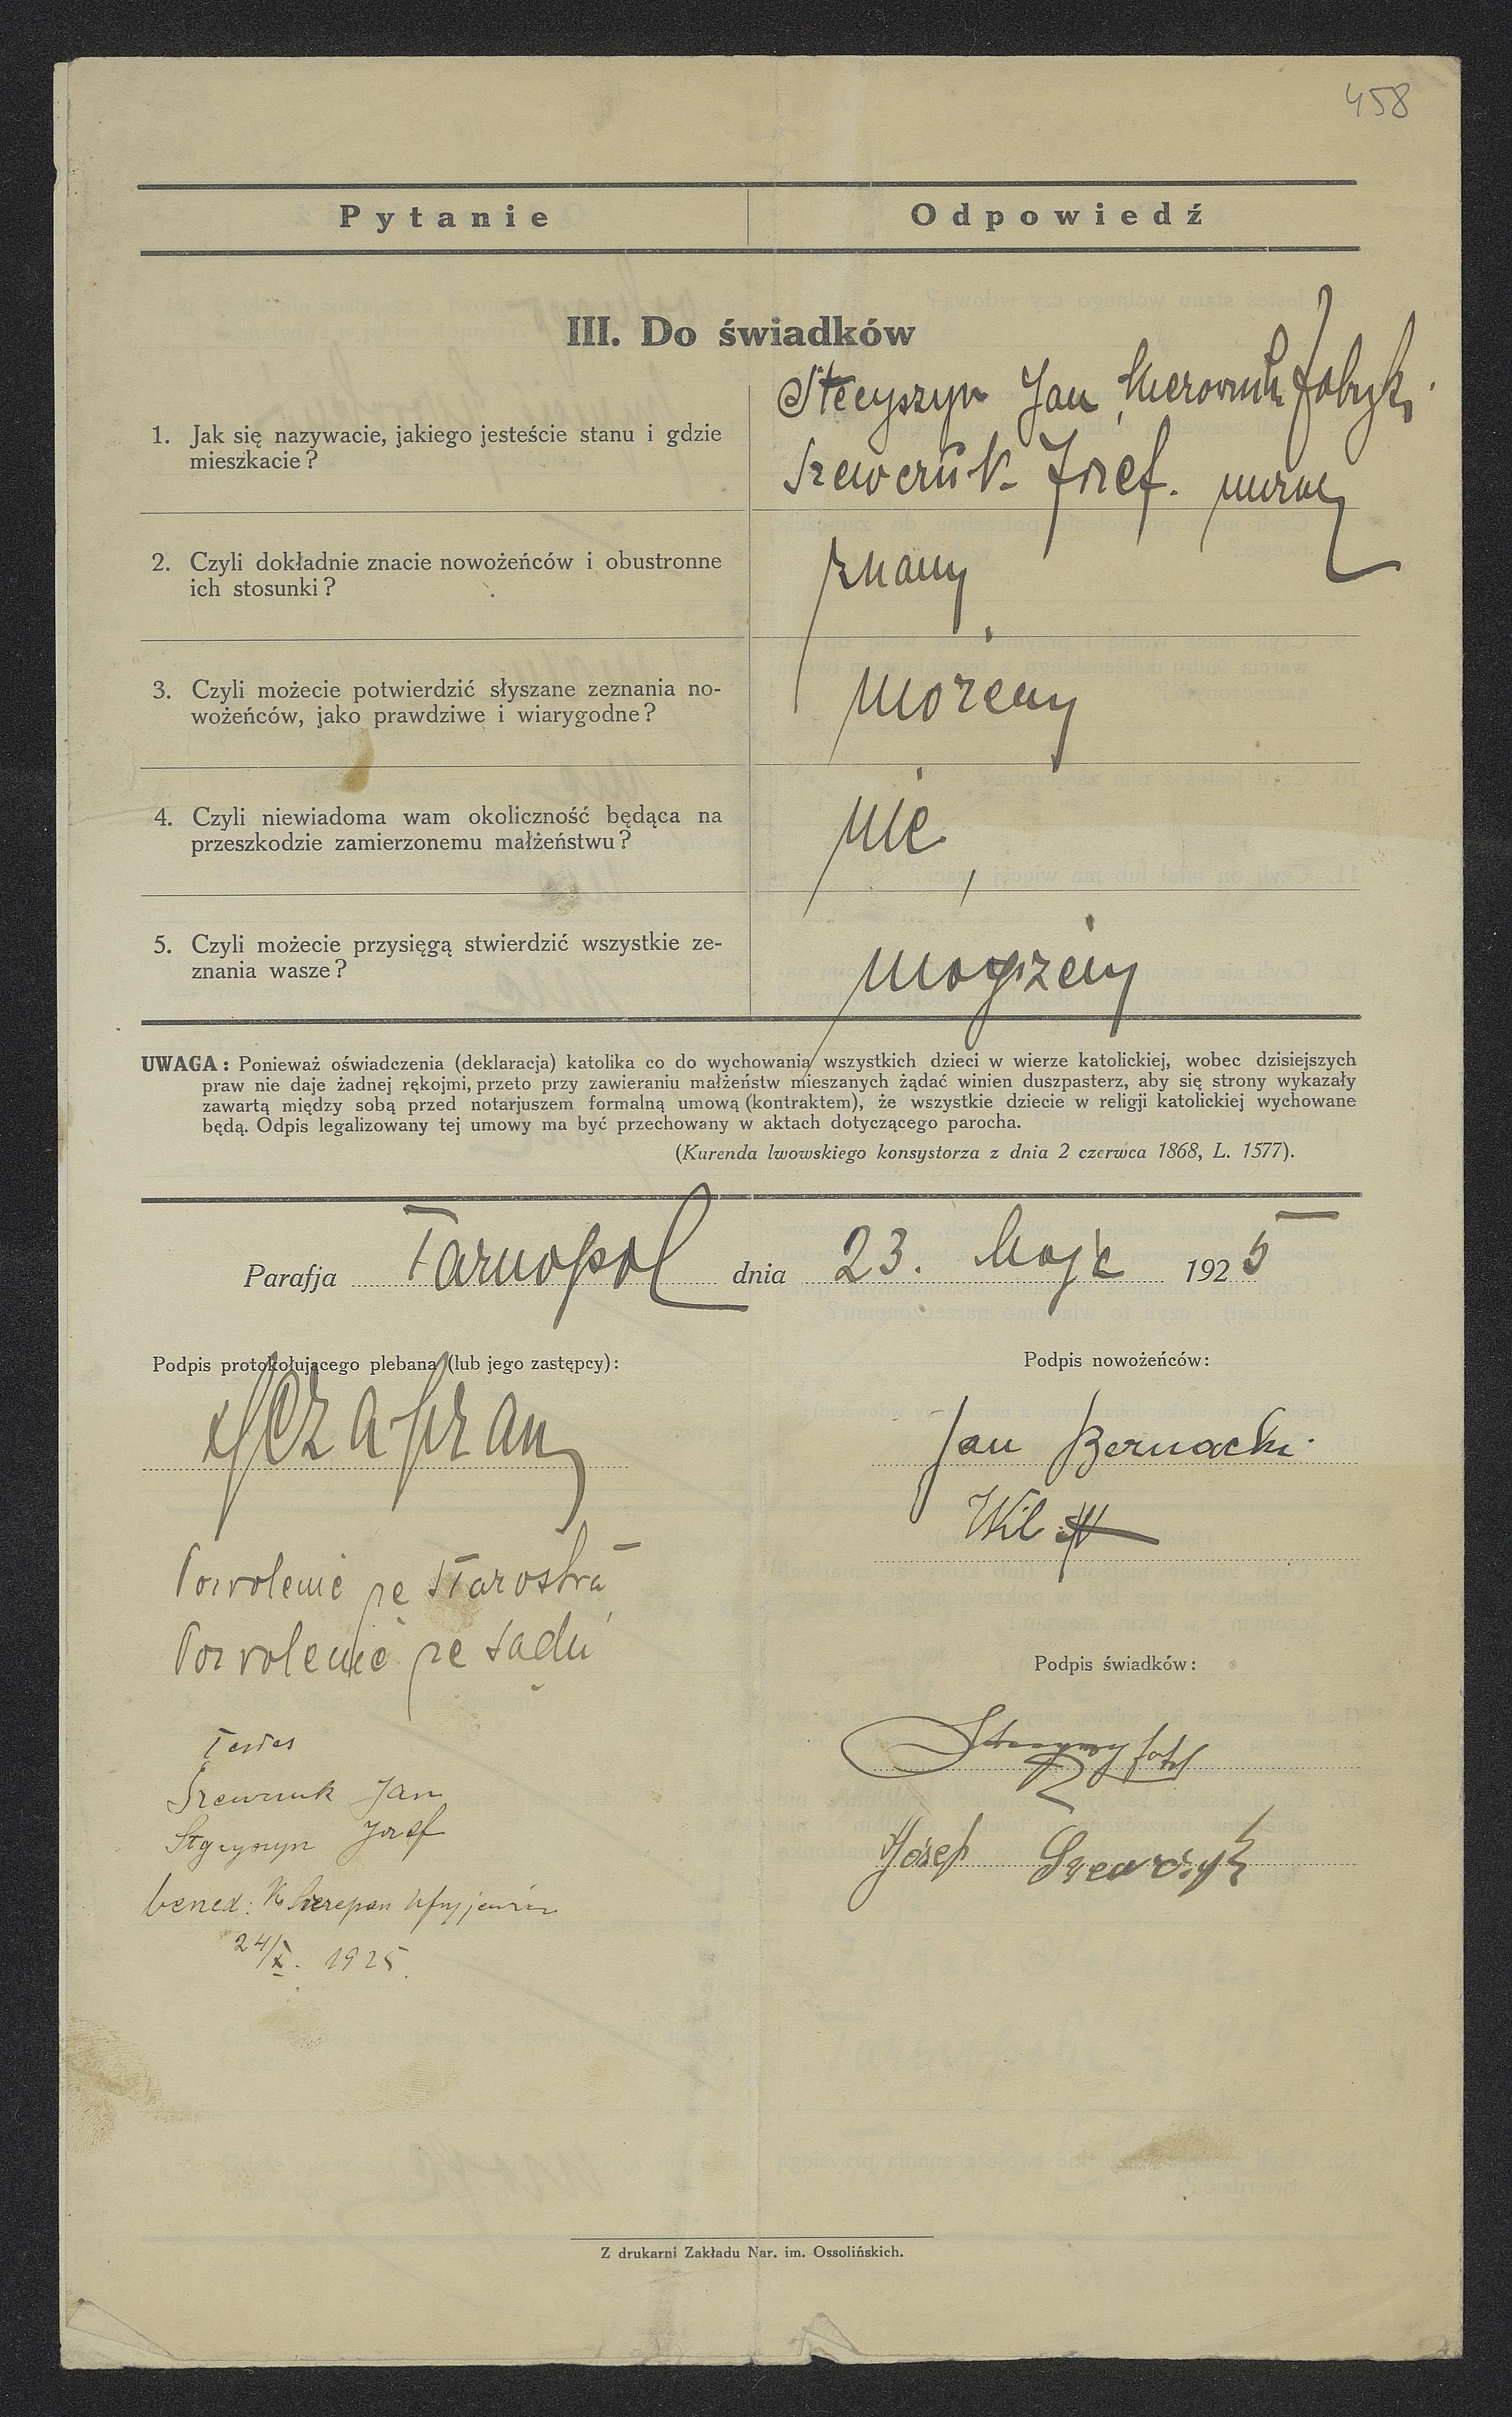 458
Pytanie
Odpowiedź
III. Do świadków
1. Jak się nazywacie, jakiego jesteście stanu i gdzie
mieszkacie?
Stecyszyn Jan, kierownik fabryki
Szewczuk Józef. murarz
2. Czyli dokładnie znacie nowożeńców i obustronne
ich stosunki?
znamy
3. Czyli możecie potwierdzić słyszane zeznania no-
wożeńców, jako prawdziwe i wiarygodne?
możemy
4. Czyli niewiadoma wam okoliczność będąca na
przeszkodzie zamierzonemu małżeństwu?
nie
5. Czyli możecie przysięgą stwierdzić wszystkie ze-
znania wasze?
UWAGA: Ponieważ oświadczenia (deklaracja) katolika co do wychowania wszystkich dzieci w wierze katolickiej, wobec dzisiejszych
praw nie daje żadnej rękojmi, przeto przy zawieraniu małżeństw mieszanych żądać winien duszpasterz, aby się strony wykazały
zawartą między sobą przed notarjuszem formalną umową (kontraktem), że wszystkie dziecie w religji katolickiej wychowane
będą. Odpis legalizowany tej umowy ma być przechowany w aktach dotyczącego parocha.
(Kurenda lwowskiego konsystorza z dnia 2 czerwca 1868, L. 1577).
Parafja Tarnopol dnia 23. Maja 1925
Podpis protokołującego plebana (lub jego zastępcy):
Podpis nowożeńców:
Jan Bernacki
Wil
Pozwolenie ze starostwa
Pozwolenie ze sądu
Podpis świadków:
Testes
Szewczuk Jan
Stecyszyn Józef
Józef Szewczyk
bened: X Szczepan
24/X. 1925.
Z drukarni Zakładu Nar. im. Ossolińskich.